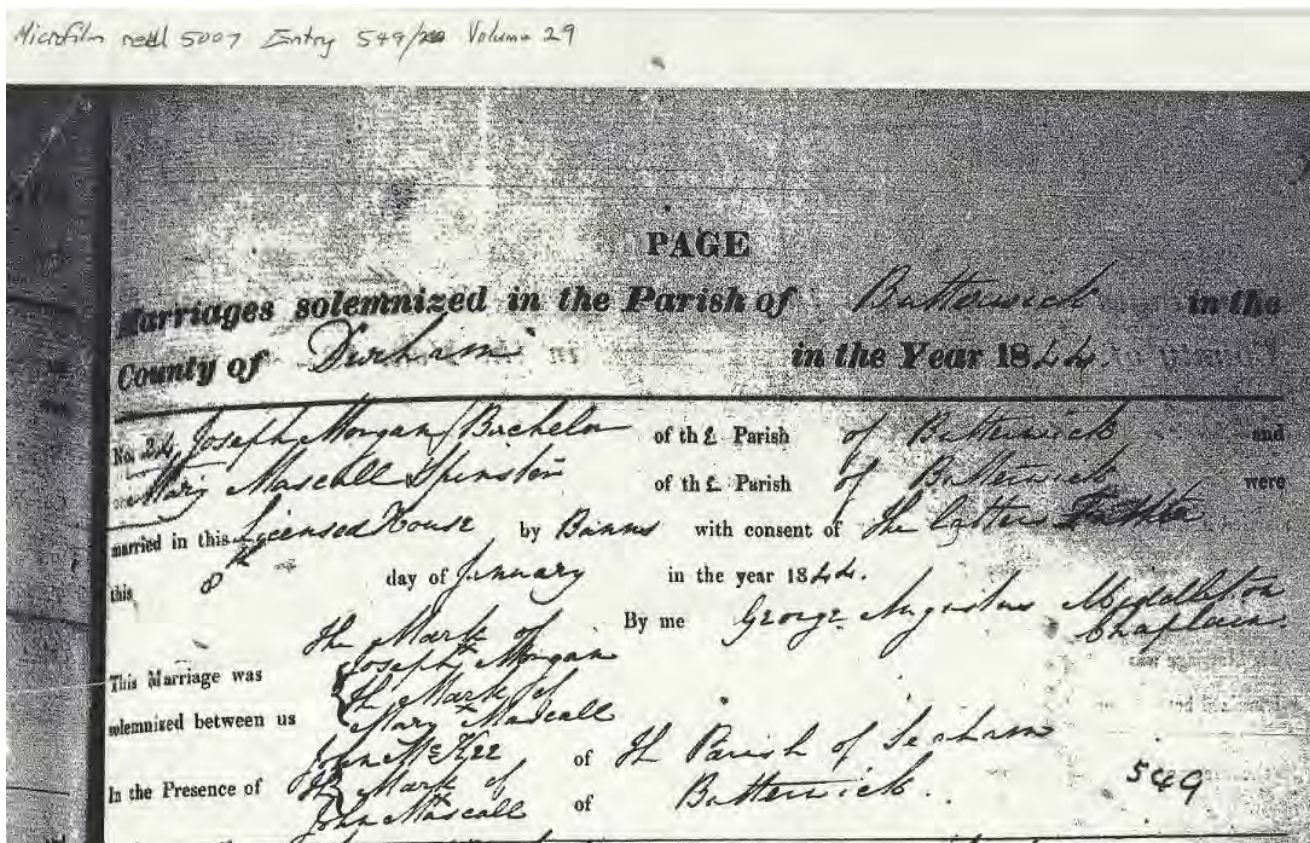 Microfilm reel 5007 Entry 549/ Volume 29
PAGE
Marriages solemnized in the Parish of Butterwick in the
County of Durham in the Year 1844.
No. 24 Joseph Morgan Bachelor of the Parish of Butterwick and
Mary Mascall Spinster of the Parish of Butterwick were
married in this Licensed House by Banns with consent of the latters Father
this 8th day of January in the year 1844.
By me George Augustus Middleton
Chaplain.
The Mark of
Joseph Morgan
This Marriage was
The Mark of
solemnized between us Mary Mascall
John McKee of the Parish of Seaham
In the Presence of The Mark of
John Mascall of Butterwick.
549